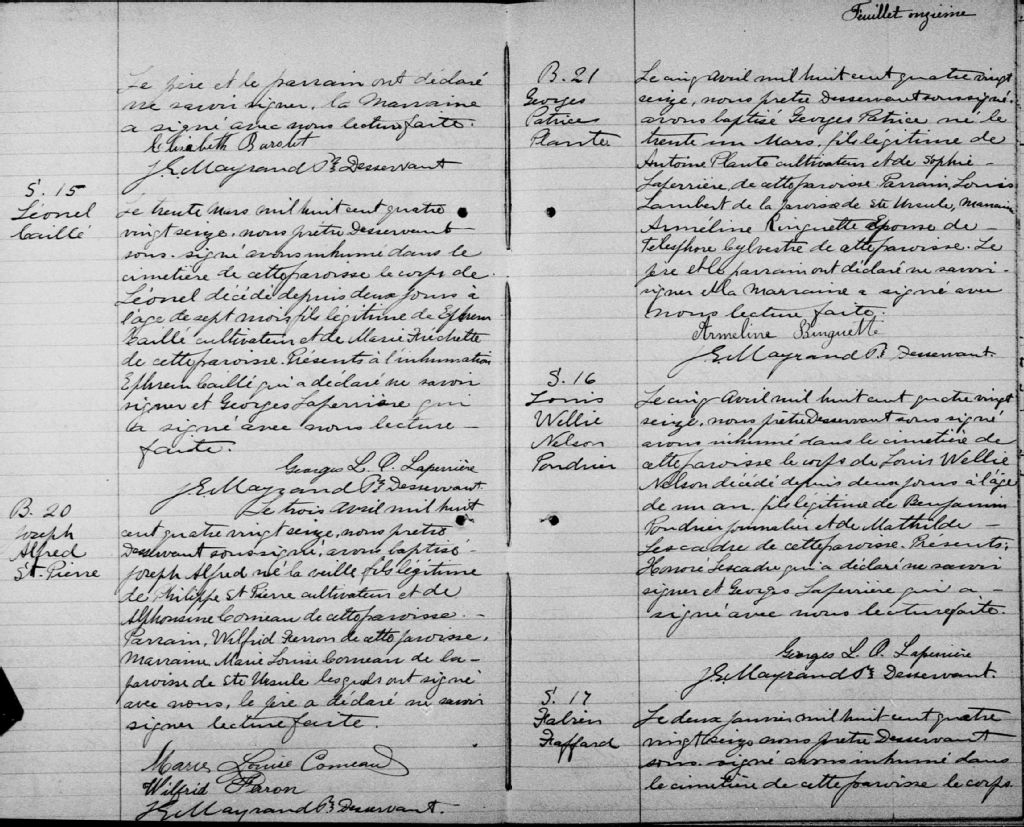 Feuillet onzième
Le père et le parrain ont déclaré
ne savoir signer, la Marraine
a signé avec nous lecture faite.
Elisabeth
J.E. Mayrand Ptre Desservant
S. 15
Léonel
Caillé
Le trente Mars mil huit cent quatre
vingt seize, nous prêtre Desservant
sous-signé avons inhumé dans le
cimetière de cette paroisse le corps de
Léonel décédé depuis deux jours à
l'âge de sept mois fils légitime de Ephrem
Caillé cultivateur et de Marie Fréchette
de cette paroisse. Présents à l'inhumation
Ephrem Caillé qui a déclaré ne savoir
signer et Georges Laferrière qui
a signé avec nous lecture
faite.
Georges L. O. Laferrière
J.E. Mayrand Ptre Desservant.
B. 20
Joseph
Alfred
St. Pierre
Le trois Avril mil huit
cent quatre vingt seize, nous prêtre
Desservant soussigné, avons baptisé
Joseph Alfred né la veille fils légitime
de Philippe St Pierre cultivateur et de
Alphonsine Comeau de cette paroisse.
Parrain, Wilfrid Ferron de cette paroisse,
Marraine Marie Louise Comeau de la
paroisse de Ste Ursule lesquels ont signé
avec nous, le père a déclaré ne savoir
signer lecture faite.
Marie Louise Comeau
Wilfrid Faron
J.E. Mayrand Ptre Desservant.
B. 21
Georges
Patrice
Plante
Le cinq Avril mil huit cent quatre vingt
seize, nous prêtre Desservant soussigné,
avons baptisé Georges Patrice né le
trente un Mars, fils légitime de
Antoine Plante cultivateur et de Sophie
Laferrière, de cette paroisse. Parrain, Louis
Lambert de la paroisse de Ste Ursule, Marraine
Arméline Ringuette Epouse de
Telesphore Sylvestre de cette paroisse. Le
père et le parrain ont déclaré ne savoir
signer et la Marraine a signé avec
nous lecture faite.
Armeline Binguette
J.E. Mayrand Ptre Desservant.
S. 16
Louis
Willie
Nelson
Pondrier
Le cinq Avril mil huit cent quatre vingt
seize, nous prêtre Desservant sous signé
avons inhumé dans le cimetière de
cette paroisse le corps de Louis Wellie
Nelson décédé depuis deux jours à l'âge
de un an, fils légitime de Benjamin
Pondrier journalier et de Mathilde
Lescadre de cette paroisse. Présents:
Honoré Lescadre qui a déclaré ne savoir
signer et Georges Laferrière qui a
signé avec nous lecture faite.
Georges L. O. Laferrière
J.E. Mayrand Ptre Desservant.
S. 17
Fabien
Faffard
Le deux Janvier mil huit cent quatre
vingt seize nous prêtre Desservant
sous-signé avons inhumé dans
le cimetière de cette paroisse le corps